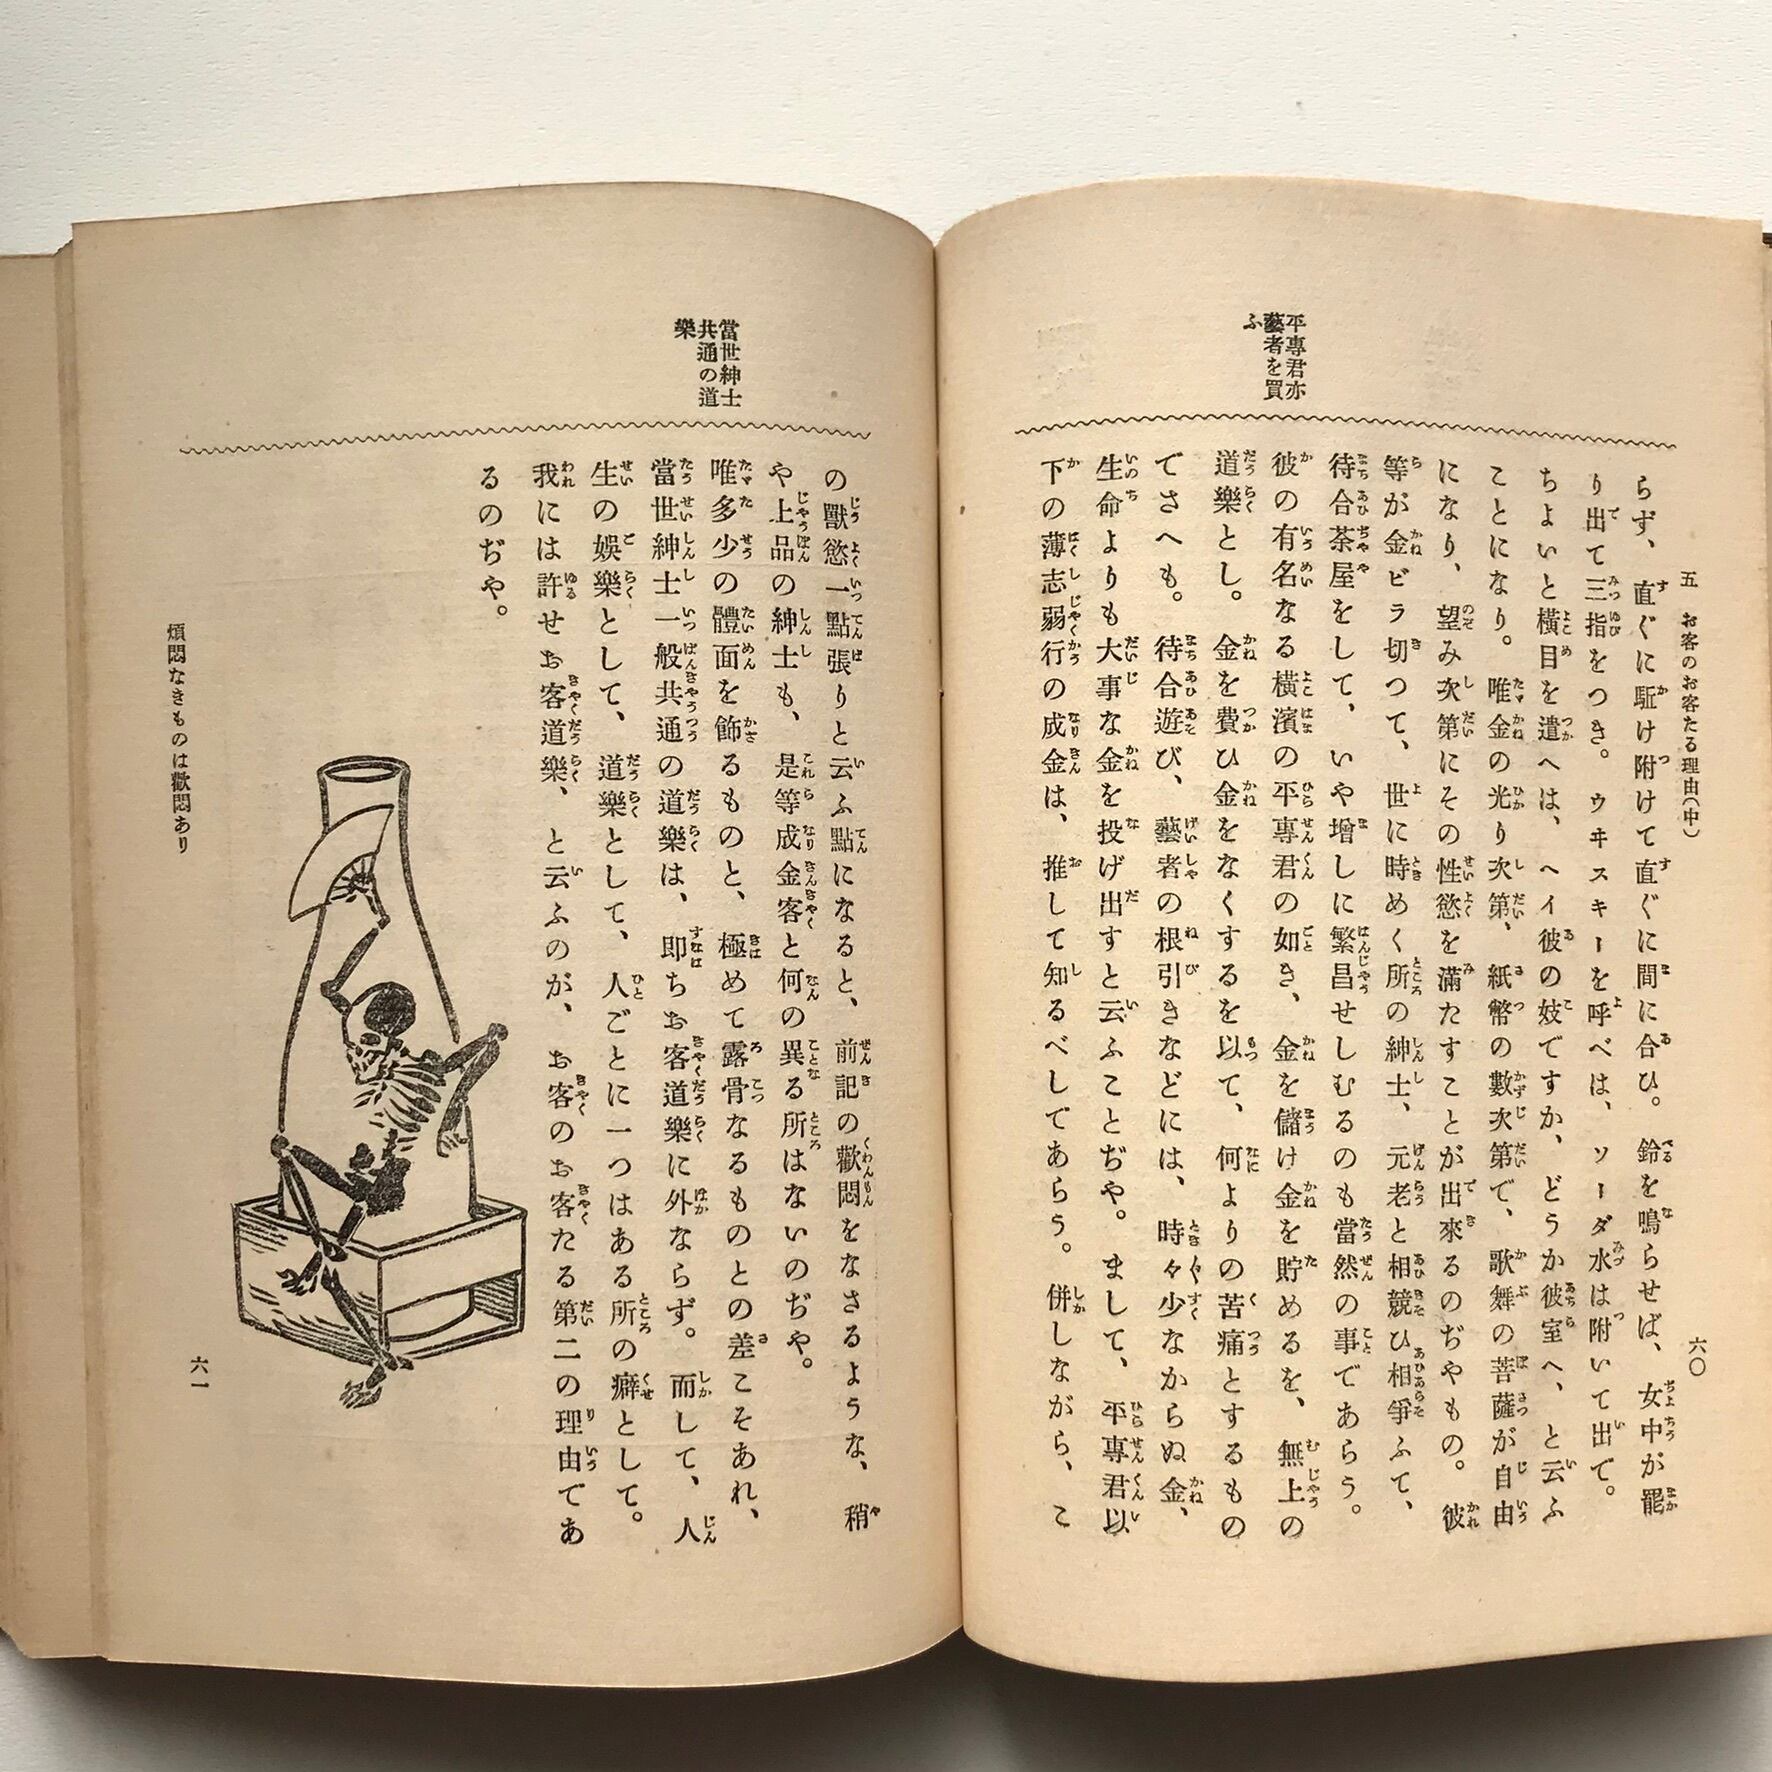 五　お客のお客たる理由(中)
六〇
平專君亦
藝者を買
ふ
らず、直ぐに駈け附けて直ぐに間に合ひ。鈴を鳴らせば、女中が罷
り出て三指をつき。ウヰスキーを呼べは、ソーダ水は附いて出で。
ちよいと橫目を遣へは、ヘイ彼の妓ですか、どうか彼室へ、と云ふ
ことになり。唯金の光り次第、紙幣の數次第で、歌舞の菩薩が自由
になり、望み次第にその性慾を滿たすことが出來るのぢやもの。彼
等が金ビラ切つて、世に時めく所の紳士、元老と相競ひ相爭ふて、
待合茶屋をして、いや增しに繁昌せしむるのも當然の事であらう。
彼の有名なる橫濱の平專君の如き、金を儲け金を貯めるを、無上の
道樂とし。金を費ひ金をなくするを以て、何よりの苦痛とするもの
でさへも。待合遊び、藝者の根引きなどには、時々少なからぬ金、
生命よりも大事な金を投げ出すと云ふことぢや。まして、平專君以
下の薄志弱行の成金は、推して知るべしであらう。併しながら、こ
當世紳士
共通の道
樂
の獸慾一點張りと云ふ點になると、前記の歡悶をなさるような、稍
や上品の紳士も、是等成金客と何の異る所はないのぢや。
唯多少の體面を飾るものと、極めて露骨なるものとの差こそあれ、
當世紳士一般共通の道樂は、即ちお客道樂に外ならず。而して、人
生の娛樂として、道樂として、人ごとに一つはある所の癖として。
我には許せお客道樂、と云ふのが、お客のお客たる第二の理由であ
るのぢや。
煩悶なきものは歡悶あり
六一